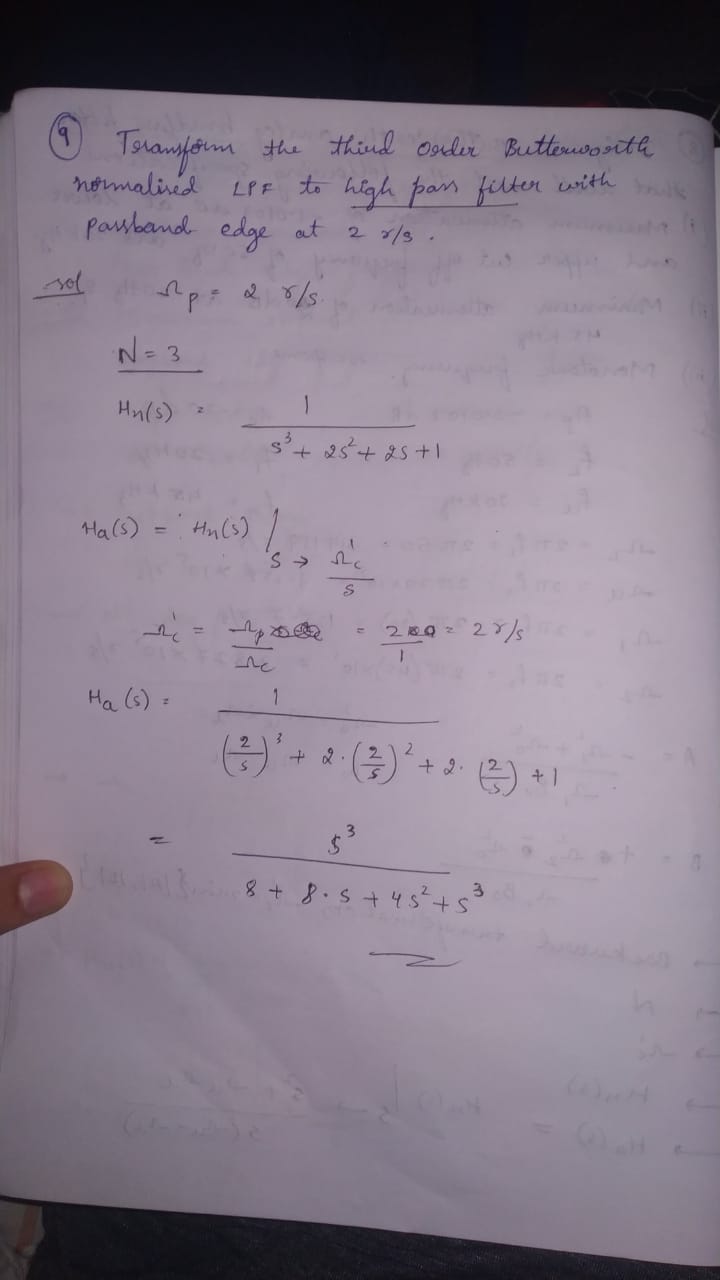 9 Transform the third order Butterworth
normalised LPF to high pass filter with
passband edge at 2 r/s.
sol Ωp = 2 r/s
N = 3
Hn(s) = 1 / (s³ + 2s² + 2s + 1)
Ha(s) = Hn(s) / s → Ωc' / s
Ωc' = Ωp / Ωc = 2 / 1 = 2 r/s
Ha(s) = 1 / ((2/s)³ + 2·(2/s)² + 2·(2/s) + 1)
= s³ / (8 + 8·s + 4s² + s³)